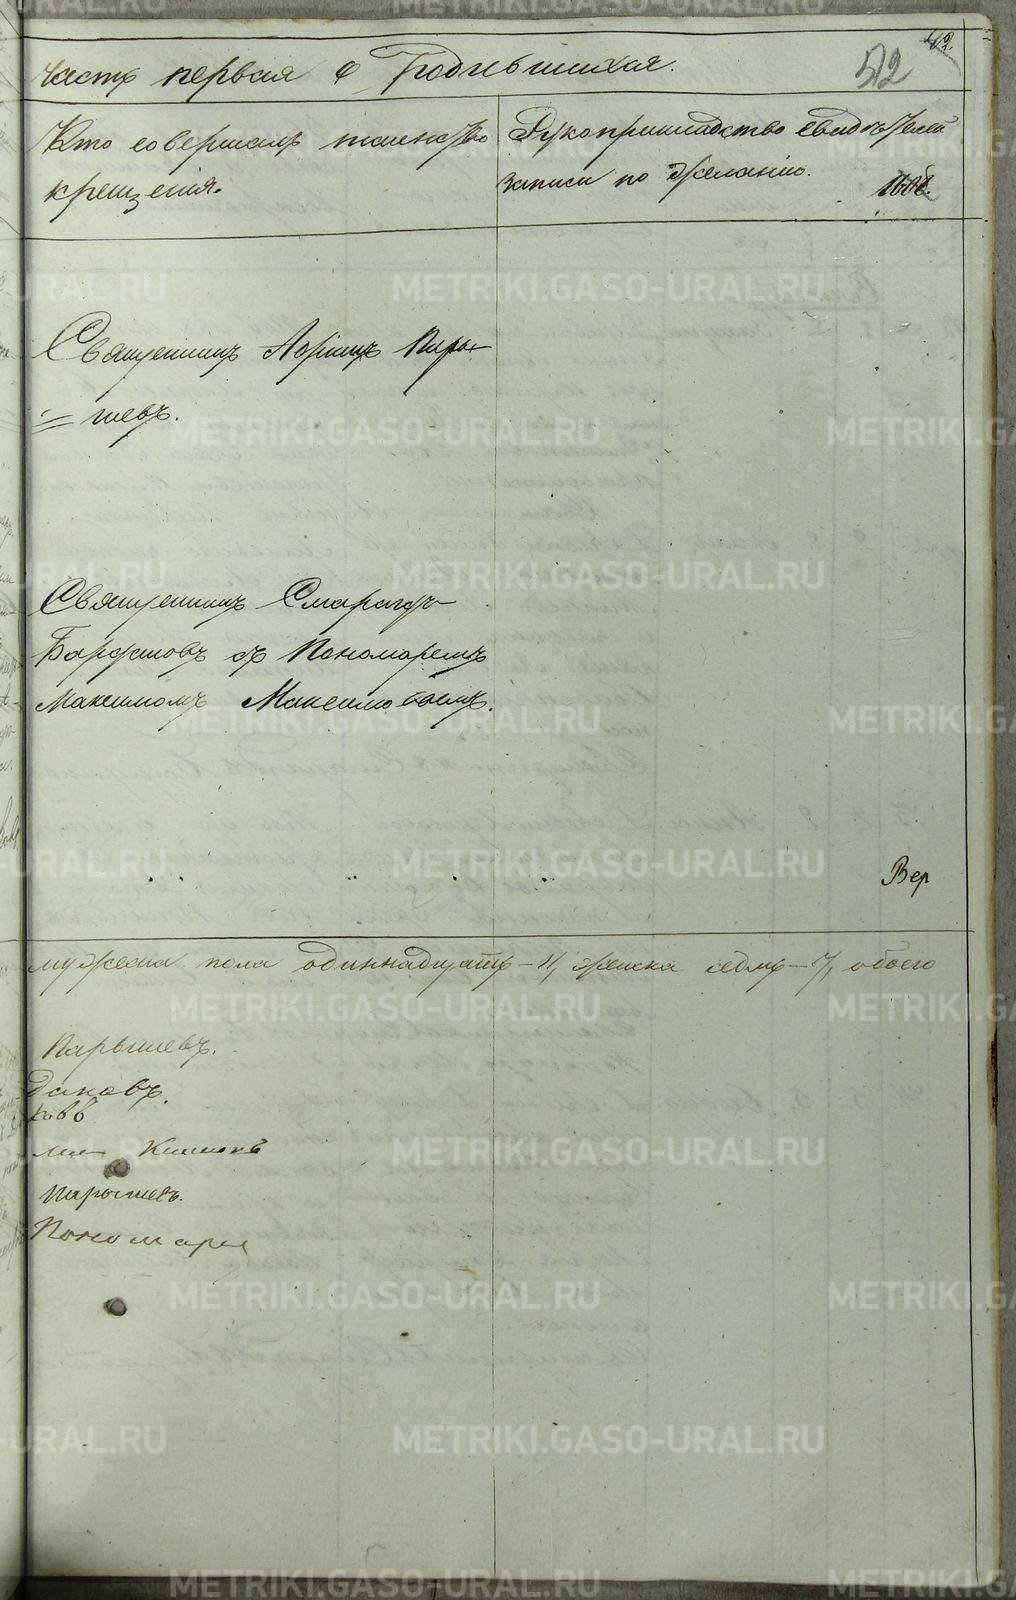 42.
512
часть первая о Родившихся.
Кто совершалъ таинство
крещенія.
Рукоприкладство свидетелей
записи по желанію.
Священникъ Логинъ Пары-
=шевъ.
Священникъ Смарагдъ
Барфтовъ съ Пономаремъ
Максимомъ Максимовымъ.
Вер
мужеска пола одиннадцать - 11, женска седмь - 7, обоего
Парышевъ.
Диковъ.
ковъ
Парышевъ.
Пономари
METRIKI.GASO-URAL.RU